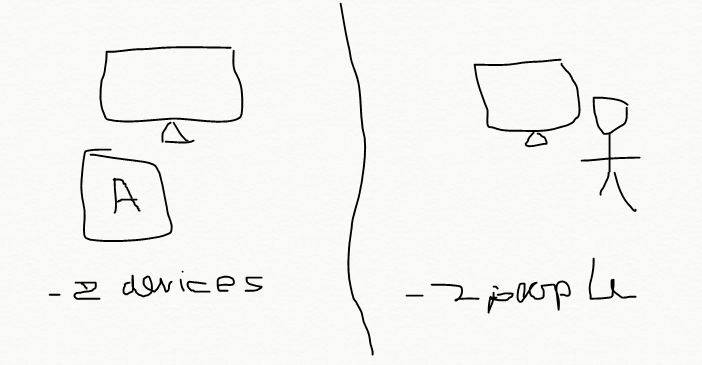 A
- 2 devices
- 2 people